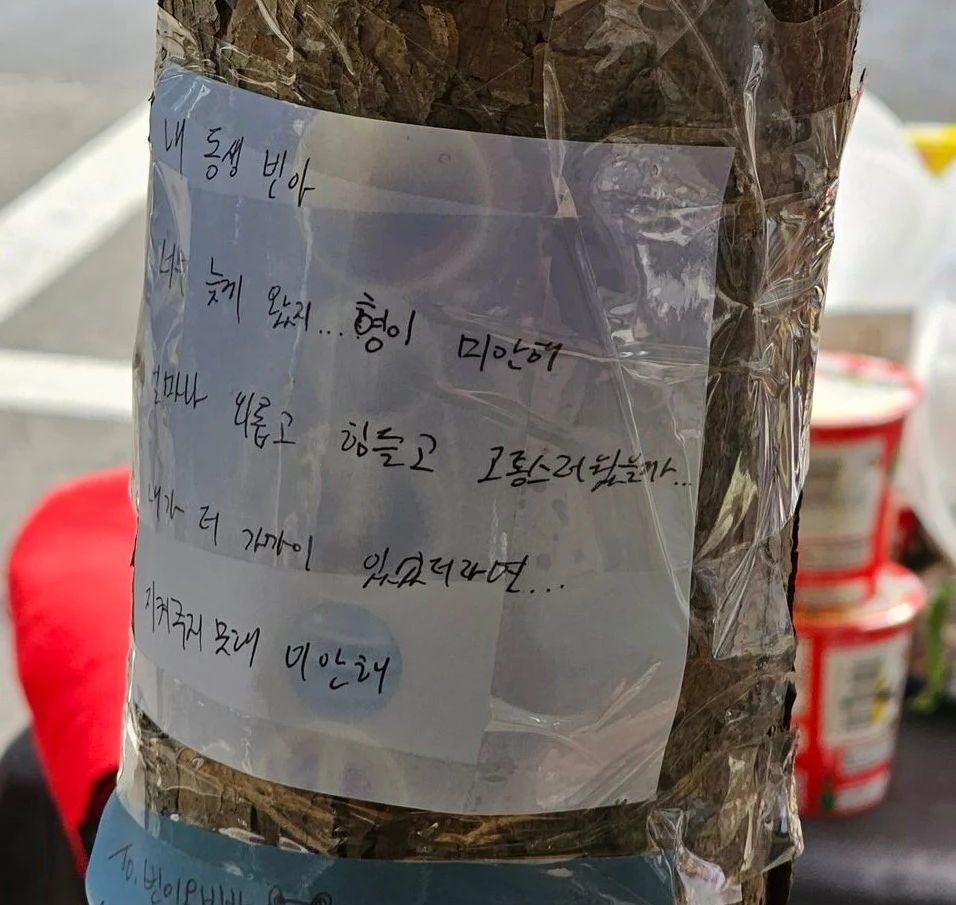 내 동생 빈아
너무 늦게 왔지...형이 미안해
얼마나 외롭고 힘들고 고통스러웠을까...
내가 더 가까이 있었더라면...
지켜주지 못해 미안해
To.